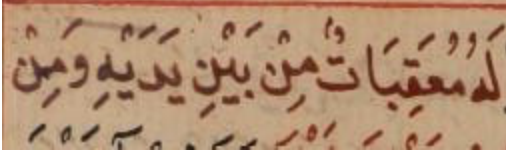 لَهُ مُعَقِبَاتٌ مِنْ بَيْنِ يَدَيْهِ وَمِنْ